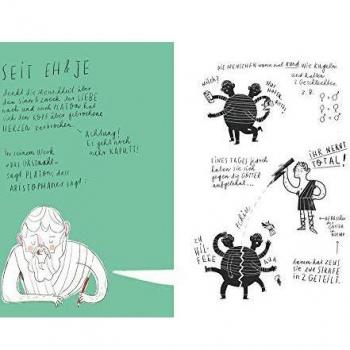 SEIT EH & JE
denkt die Menschheit über
den Sinn & Zweck der LIEBE
nach und auch PLATON hat
sich den KOPF über gebrochene
HERZEN zerbrochen.
Achtung!
Es geht noch
mehr KAPUTT!
In seinem Werk
»DAS GASTMAHL«
sagt PLATON, dass
ARISTOPHANES sagt:
DIE MENSCHEN waren mal RUND wie Kugeln
und hatten
2 Geschlechter
z.B.
♀+♂
♀+♀
♂+♂
EINES TAGES jedoch
haben sie sich
gegen die GÖTTER
aufgelehnt...
IHR NERVT
TOTAL!
ZU
HIL-
FEEE
AUA
darum hat ZEUS
sie ZUR STRAFE
in 2 GETEILT.